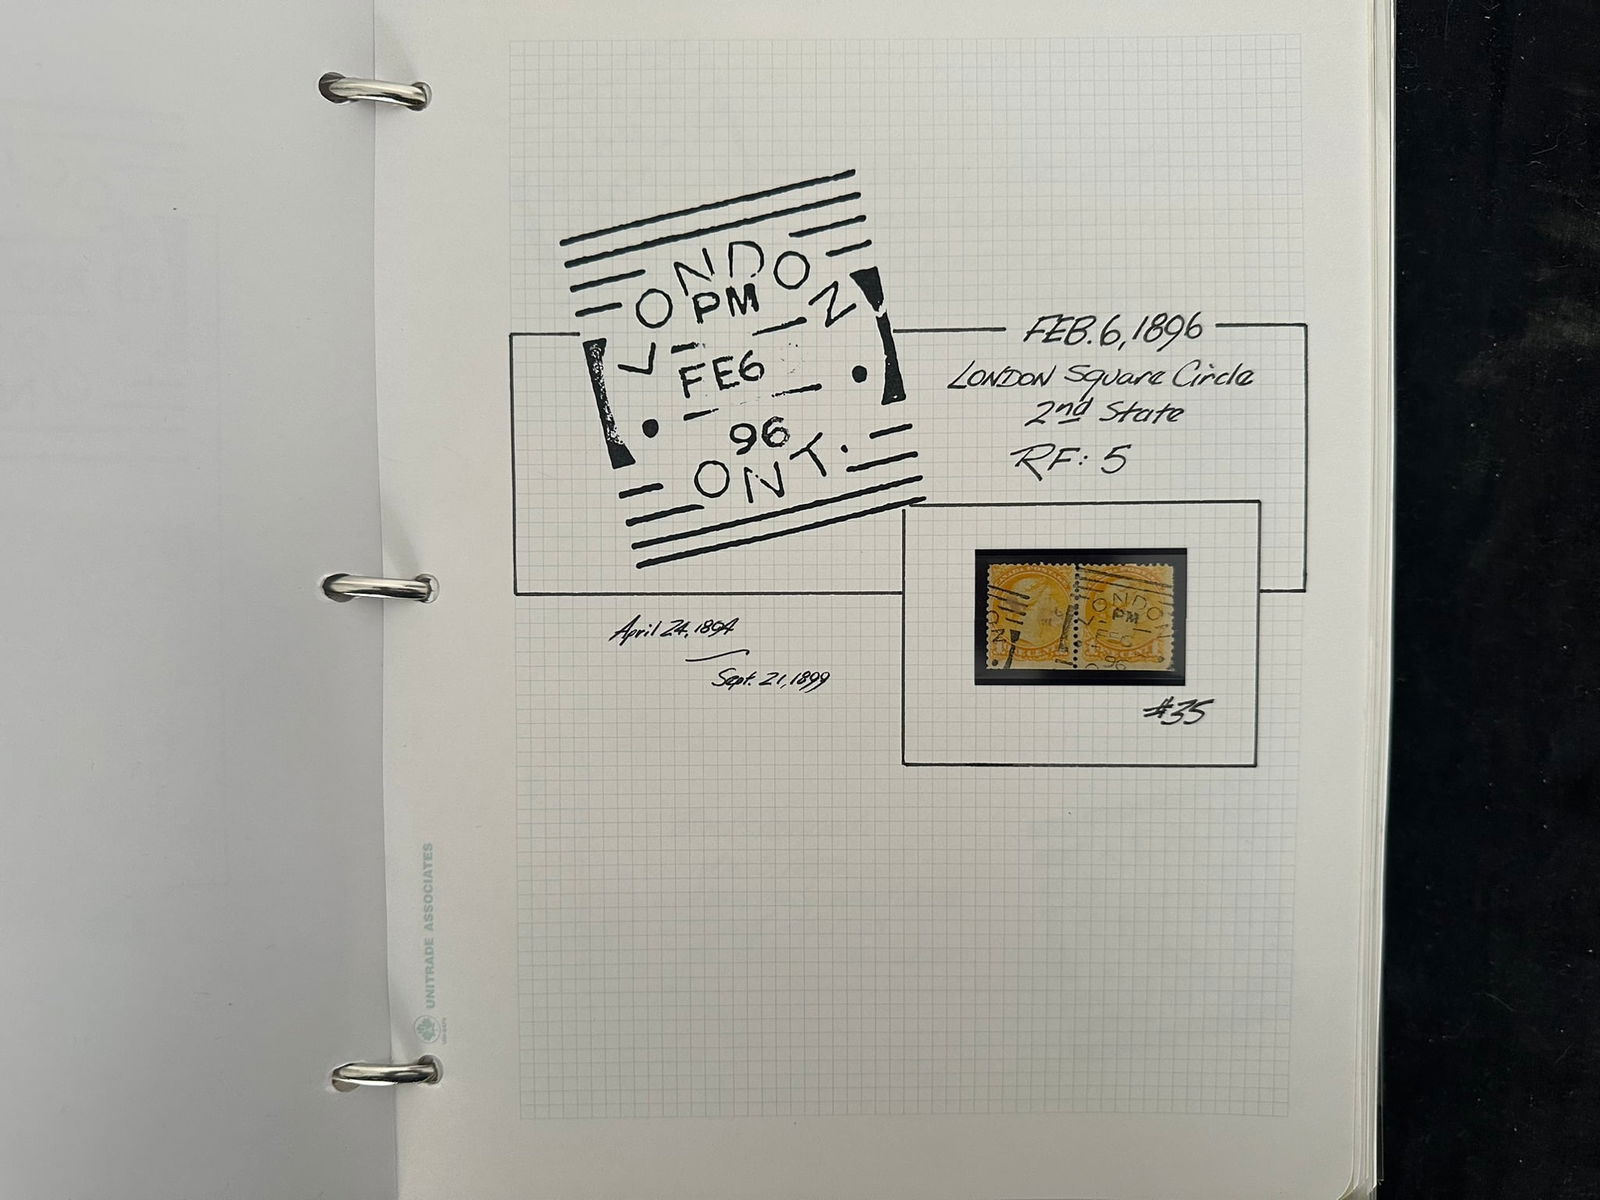 LONDON
PM
FE6
96
ONT.
FEB. 6, 1896
LONDON Square Circle
2nd State
RF: 5
April 24, 1894
Sept. 21, 1899
LONDON
PM
96
#35
UNITRADE ASSOCIATES